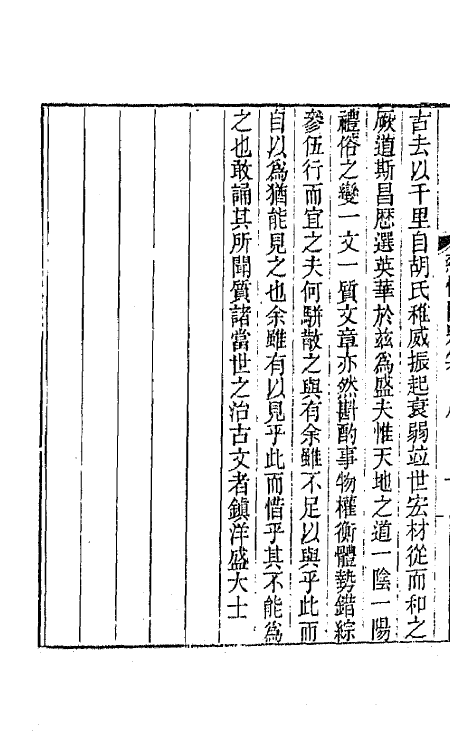 古去以千里自胡氏稚威振起衰弱竝世宏材從而和之
厥道斯昌歷選英華於兹為盛夫惟天地之道一陰一陽
禮俗之變一文一質文章亦然斟酌事物權衡體勢錯綜
參伍行而宜之夫何駢散之與有余雖不足以與乎此而
自以為猶能見之也余雖有以見乎此而惜乎其不能為
之也敢誦其所聞質諸當世之治古文者鎮洋盛大士